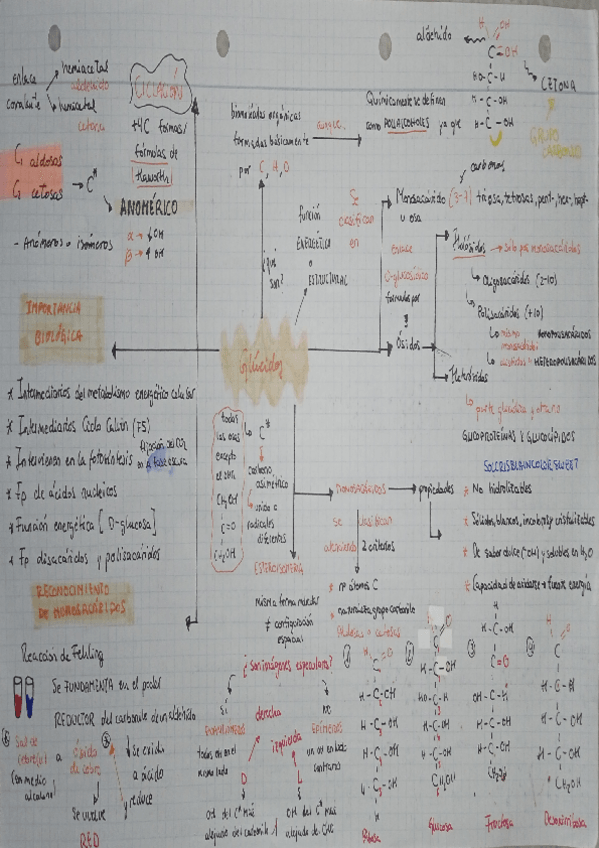 enlace
covalente
hemiacetal
aldehído
hemicetal
cetona
CICLACIÓN
+4C formas/
fórmulas de
Haworth
aldosas
cetosas
C*
ANOMÉRICO
- Anómeros o isómeros
α → ↓ OH
β → ↑ OH
biomoléculas orgánicas
formadas básicamente
por C, H, O
Químicamente se definen
como POLIALCOHOLES ya que
aldehído
CETONA
GRUPO
CARBONILO
H OH
C OH
HO-C-H
H-C-OH
H-C-OH
¿Qué
son?
función
ENERGÉTICA
o
ESTRUCTURAL
Se
clasifican
en
carbonos
Monosacárido (3-7) triosa, tetrosas, pent-, hex-, hept-
u osa
enlace
O-glucosídico
formados por
Ósidos
Holósidos → solo por monosacáridos
Oligosacáridos (2-10)
Polisacáridos (+10)
mismo
monosacárido
HOMOPOLISACÁRIDOS
distintos → HETEROPOLISACÁRIDOS
Heterósidos
parte glucídica y otra no
GLUCOPROTEÍNAS Y GLUCOLÍPIDOS
Glúcidos
IMPORTANCIA
BIOLÓGICA
* Intermediarios del metabolismo energético celular
* Intermediarios Ciclo Calvin (FS)
* Intervienen en la fotosíntesis
fijación del CO2
en la fase oscura
* Fp de ácidos nucleicos
* Función energética [D-glucosa]
* Fp disacáridos y polisacáridos
todas
las osas
excepto
CH2OH
C=O
CH2OH
C*
carbono
asimétrico
unido a
radicales
diferentes
ESTEREOISOMERÍA
misma forma molecular
≠ configuración
espacial
MONOSACÁRIDOS
se clasifican
atendiendo 2 criterios
* nº átomos C
* naturaleza grupo carbonilo
aldosas o cetosas
propiedades
SOLCRISBLAINCOLORSWEET
* No hidrolizables
* Sólidos, blancos, incoloros y cristalizables
* De sabor dulce (-OH) y solubles en H2O
* Capacidad de oxidarse → fuente energía
RECONOCIMIENTO
DE MONOSACÁRIDOS
Reacción de Fehling
Se FUNDAMENTA en el poder
REDUCTOR del carbonilo de un aldehído
Sal de
cobre
(en medio
alcalino)
a
óxido
de cobre
Se vuelve
RED
Se oxida
a ácido
y reduce
¿Son imágenes especulares?
Sí
no
ENANTIÓMEROS
todos OH en el
mismo lado
derecha
izquierda
EPÍMEROS
un OH en lado
contrario
D
L
OH del C* más
alejado del carbonilo
OH del C* más
alejado de
C=O
H-C-OH
H-C-OH
H-C-OH
Ribosa
H-C-OH
HO-C-H
H-C-OH
H-C-OH
CH2OH
Glucosa
H
H-C-OH
C=O
OH-C-H
H-C-OH
H-C-OH
CH2OH
Fructosa
C=O
H-C-H
H-C-OH
H-C-OH
CH2OH
Desoxirribosa